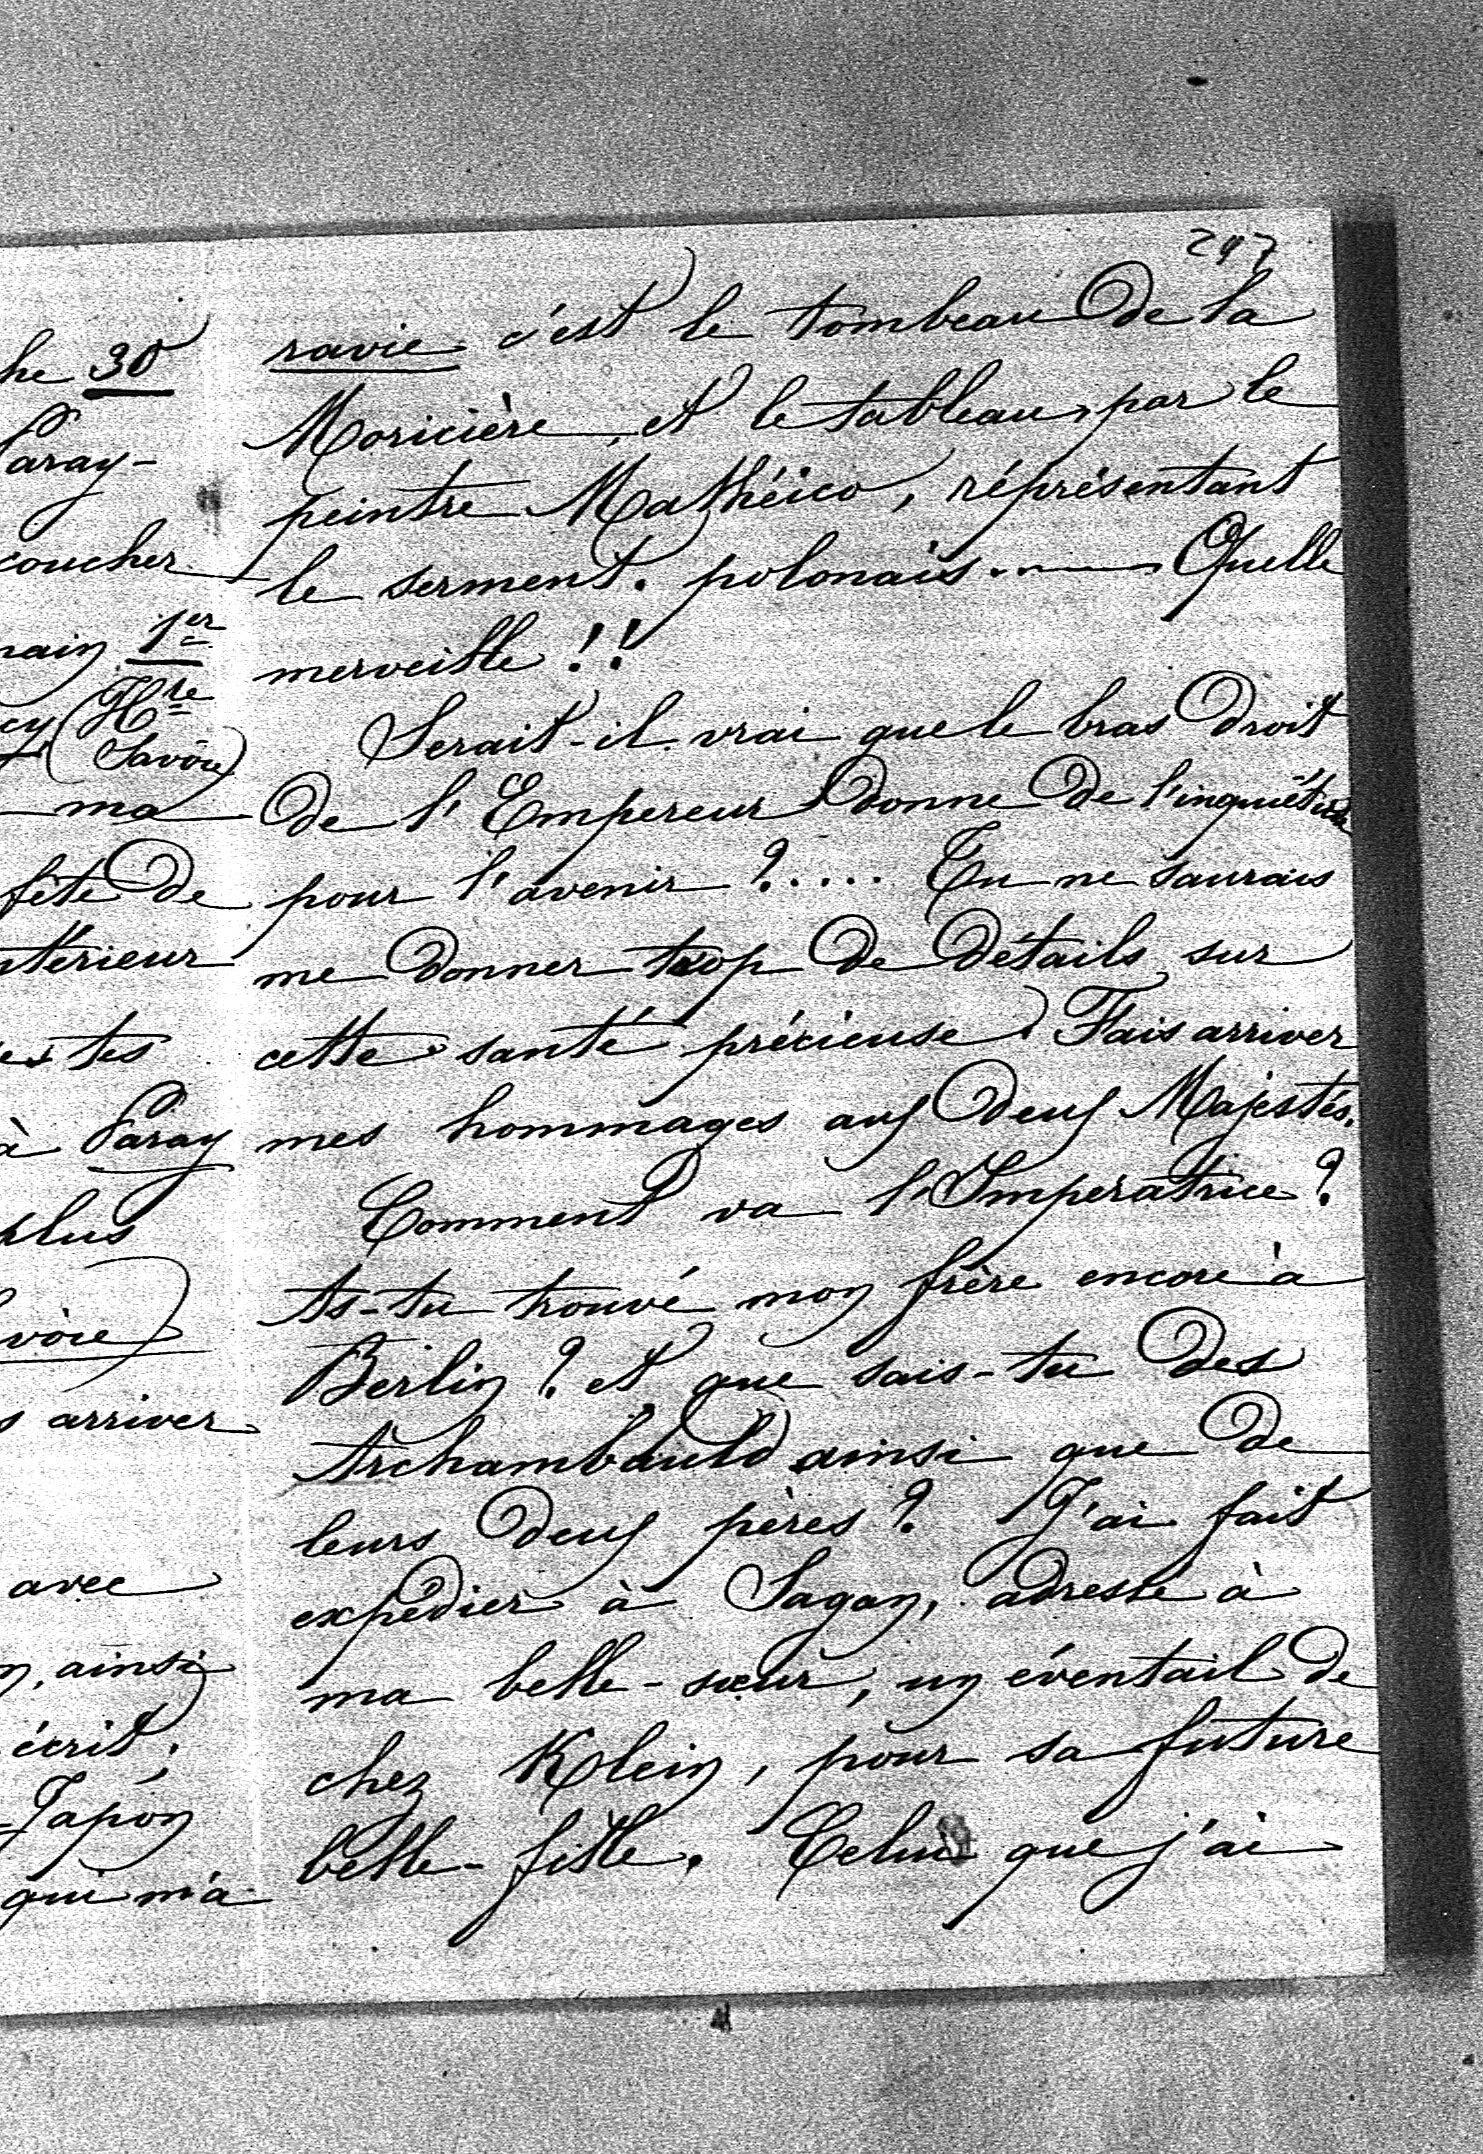 he 30
Paray-
coucher
main 1er
cy (Hte
Savoie)
ma
fête de
ntérieur
tes
à Paray
plus
voie)
s arriver
avec
n, ainsi
écrit,
Japon
qui m'a
297
ravie c'est le tombeau de la
Moricière, et le tableau, par le
peintre Mathéico, réprésentant
le serment polonais..... Quelle
merveille !!
Serait-il vrai que le bras droit
de l'Empereur donne de l'inquiétude
pour l'avenir ?.... Tu ne saurais
me donner trop de détails sur
cette santé précieuse. Fais arriver
mes hommages aux deux Majestés.
Comment va l'Imperatrice ?
As-tu trouvé mon frère encore à
Berlin ? et que sais-tu des
Archambauld ainsi que de
leurs deux pères ? J'ai fait
expédier à Sagan, adresse à
ma belle-sœur, un éventail de
chez Klein, pour sa future
belle-fille. Celui que j'ai